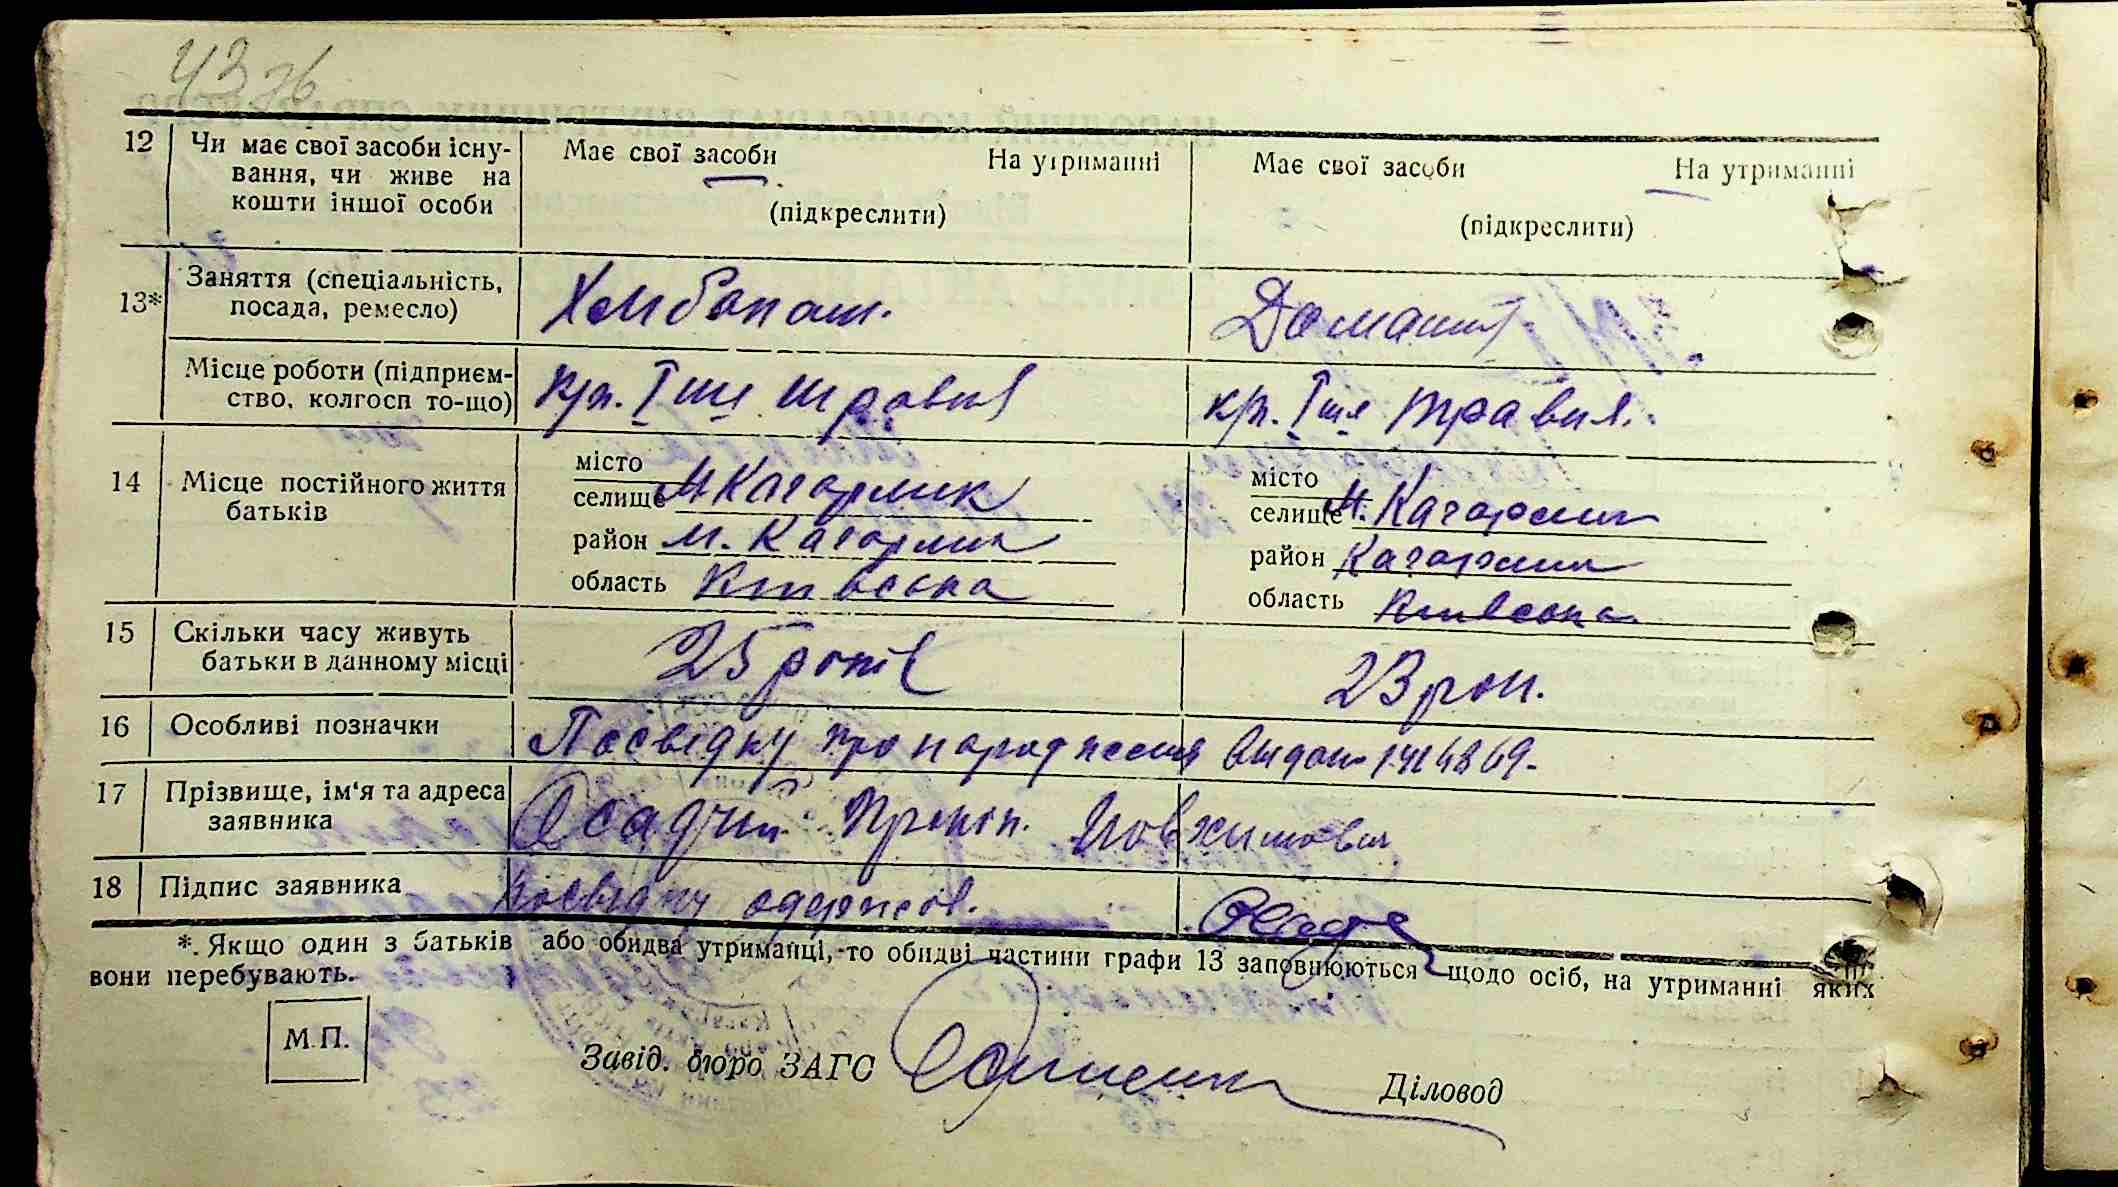 43 зв
12 Чи має свої засоби існу- Має свої засоби На утриманні Має свої засоби На утриманні
вання, чи живе на
кошти іншої особи (підкреслити) (підкреслити)
Заняття (спеціальність, Домашня
13* посада, ремесло)
Місце роботи (підприєм- кр. 1ше травня кр. 1ше травня.
ство, колгосп то-що)
14 Місце постійного життя місто місто
батьків селище М Кагарлик селище М. Кагарлик
район м. Кагарлик район Кагарлик
область Київська область Київська
15 Скільки часу живуть 25 років 23 рок.
батьки в данному місці
16 Особливі позначки Посвідку про народження видан
17 Прізвище, ім'я та адреса Осадчий Прокіп.
заявника
18 Підпис заявника посвідку одержав. Осадч
*. Якщо один з батьків або обидва утриманці, то обидві частини графи 13 заповнюються щодо осіб, на утриманні яких
вони перебувають.
М.П.
Завід. бюро ЗАГС Діловод